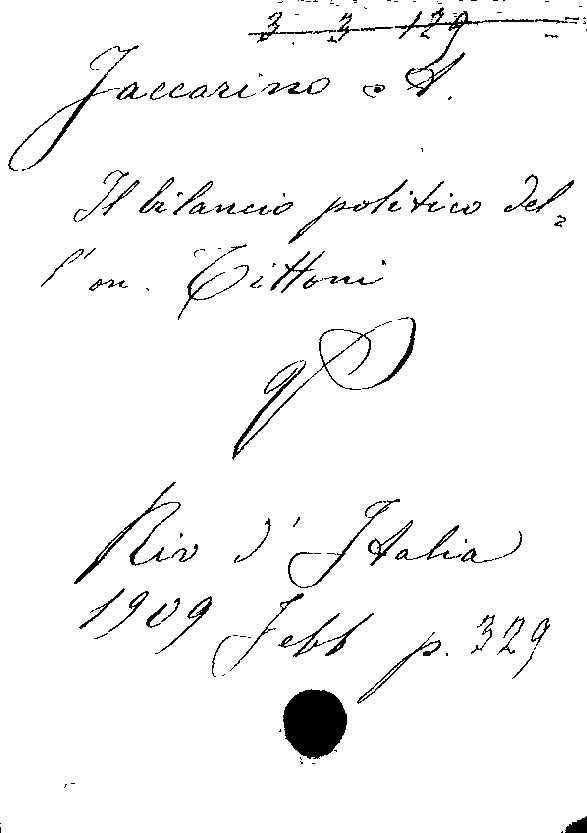 3 3 129
Jaccarino A.
Il bilancio politico del=
l'on. Tittoni
Riv d'Italia
1909 Febb p. 329